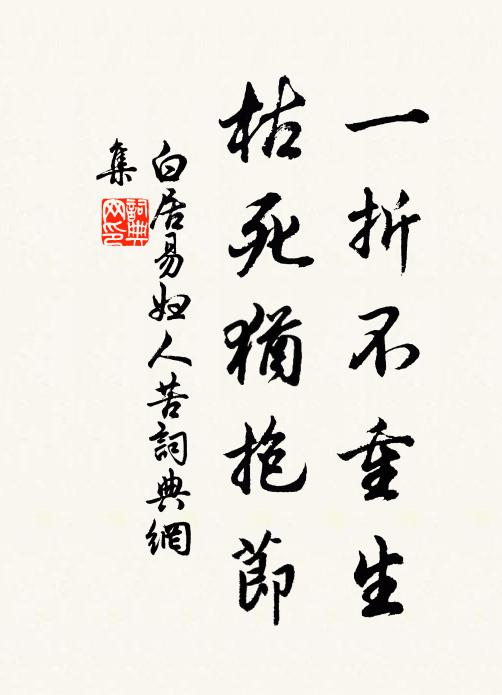 一折不重生
枯死猶抱節
白居易婦人苦詞典網
集
詞典
网印